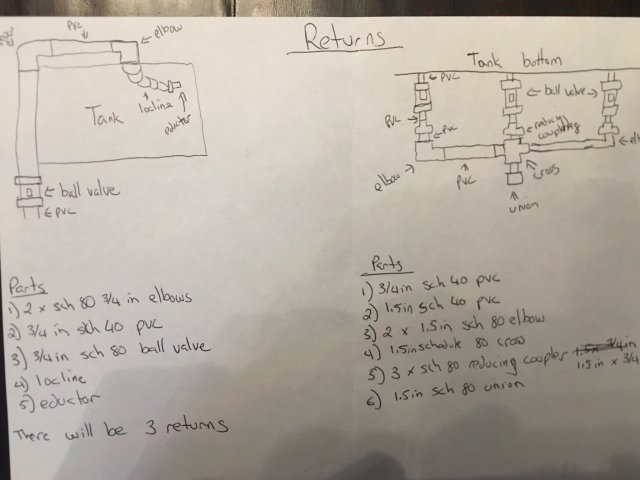 Returns
PVC
elbow
elbow
Tank
locline
eductor
ball valve
PVC
Parts
1) 2 x sch 80 3/4 in elbows
2) 3/4 in sch 40 pvc
3) 3/4in sch 80 ball valve
4) locline
5) eductor
There will be 3 returns
Tank bottom
PVC
ball valve
PVC
PVC
reducing
coupling
elbow
PVC
cross
union
Parts
1) 3/4in sch 40 pvc
2) 1.5in sch 40 pvc
3) 2 x 1.5in sch 80 elbow
4) 1.5in schedule 80 cross
5) 3 x sch 80 reducing coupler
1.5in x 3/4
6) 1.5in sch 80 union